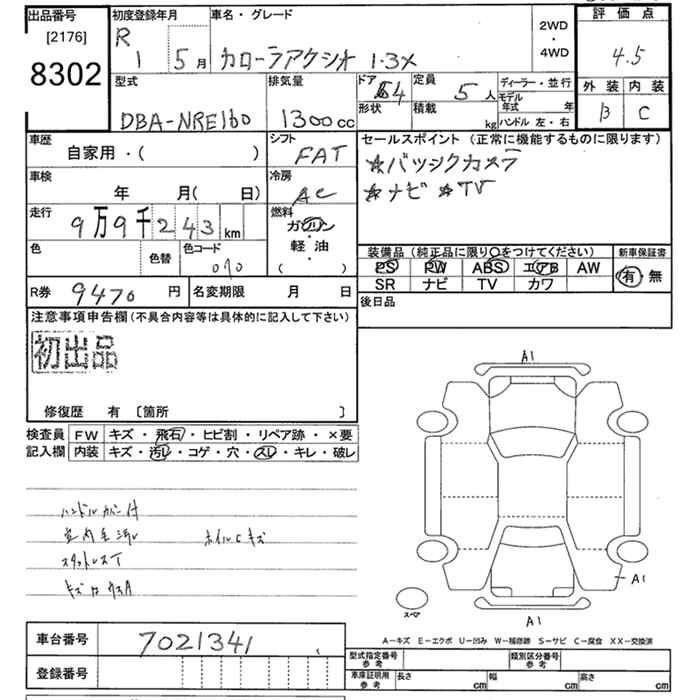 出品番号
[2176]
8302
初度登録年月
R 1 5 月
車名・グレード
カローラアクシオ 1.3X
2WD
・
4WD
評価点
4.5
外装 内装
B C
型式
DBA-NRE160
排気量
1300 cc
ドア 4
形状
定員 5 人
積載 kg
ディーラー・並行
モデル年式 年
ハンドル 左・右
車歴
自家用・( )
シフト
FAT
車検
年 月( 日)
冷房
AC
走行
9万9千243 km
燃料
ガソリン
・
軽・油
( )
色
色替
色コード
070
R券 9470 円
名変期限 月 日
セールスポイント(正常に機能するものに限ります)
☆バックカメラ
☆ナビ ☆TV
装備品(純正品に限り〇をつけてください)
PS PW ABS エアB AW
SR ナビ TV カワ
新車保証書
有・無
後日品
注意事項申告欄(不具合内容等は具体的に記入して下さい)
初出品
修復歴 有 〔箇所 〕
検査員記入欄
FW キズ・飛石・ヒビ割・リペア跡・×要
内装 キズ・汚レ・コゲ・穴・スレ・キレ・破レ
ハンドルカバー付
室内毛汚レ ホイルCキズ
スタットレスT
A1
A1
A1
スペア
A−キズ E−エクボ U−凹み W−補修跡 S−サビ C−腐食 XX−交換済
車台番号 7021341
登録番号
型式指定番号 参考
類別区分番号 参考
車庫証明用 参考 長さ cm 幅 cm 高さ cm